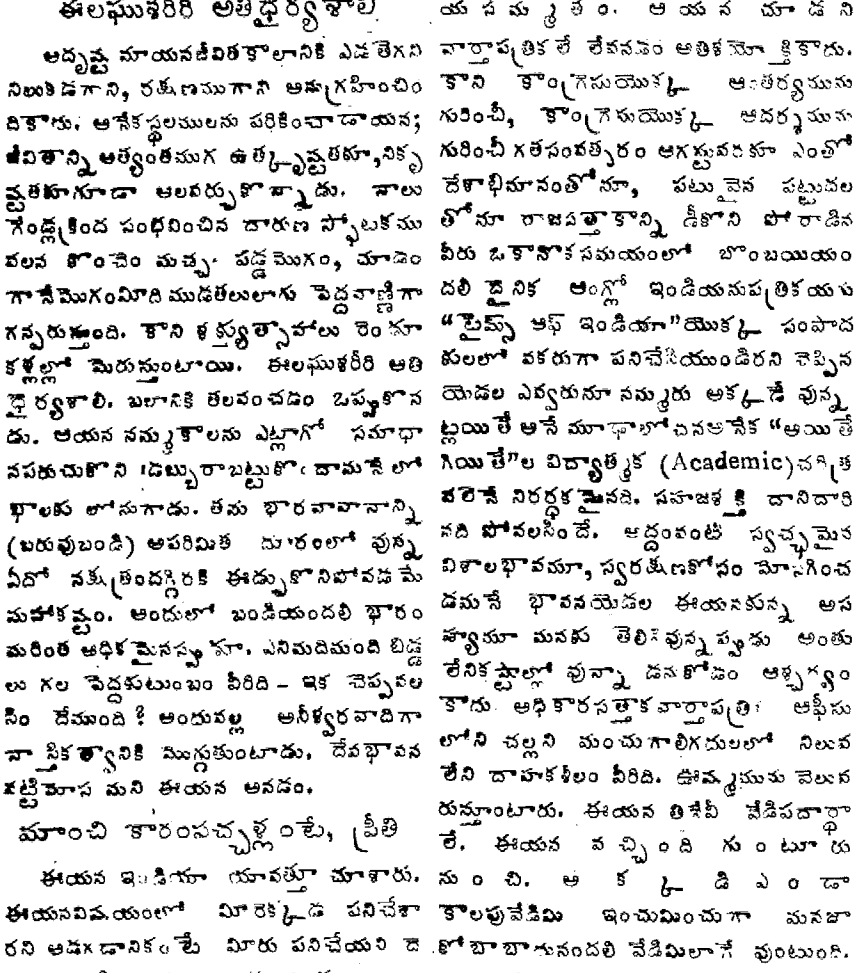 ఈలఘుశరీరి అతిధైర్యశాలి
అదృష్ట మాయనజీవితకాలానికి ఎడతెగని
నిలుకడగాని, రక్షణముగాని అనుగ్రహించిం
దికాదు. అనేకస్థలములను పరికించాడాయన;
జీవితాన్ని అత్యంతముగ ఉత్కృష్టతకూ, నికృ
ష్టతకూగూడా అలవర్చుకొన్నాడు. నాలు
గేండ్లక్రింద సంభవించిన దారుణ స్ఫోటకము
వలన కొంచెం మచ్చ పడ్డమొగం, చూడం
గానేమొగంమీది ముడతలులాగు పెద్దవాణ్ణిగా
గన్పరుస్తుంది. కాని శక్త్యుత్సాహాలు రెండూ
కళ్లల్లో మెరుస్తుంటాయి. ఈలఘుశరీరి అతి
ధైర్యశాలి. బలానికి తలవంచడం ఒప్పుకొన
డు. ఆయన నమ్మకాలను ఎట్లాగో సమాధా
నపరుచుకొని డబ్బురాబట్టుకొందామనే లో
భాలకు లోనుగాడు. తను భారవాహనాన్ని
(బరువుబండి) అపరిమిత దూరంలో వున్న
ఏదో నక్షత్రందగ్గిరకి ఈడ్చుకొనిపోవడమే
మహాకష్టం. అందులో బండియందలి భారం
మరింత అధికమైనప్పుడూ. ఎనిమదిమంది బిడ్డ
లు గల పెద్దకుటుంబం వీరిది – ఇక చెప్పవల
సిం దేముంది? అందువల్ల అనీశ్వరవాదిగా
నాస్తికత్వానికి మొగ్గుతుంటాడు. దేవభావన
గట్టిమోస మని ఈయన అనడం.
మాంచి కారంపచ్చళ్లంటే, ప్రీతి
ఈయన ఇండియా యావత్తూ చూశారు.
ఈయనవిషయంలో మీరెక్కడ పనిచేశా
రని అడగడానికంటే మీరు పనిచేయని దె
యసమ్మతం. ఆయన చూడని
వార్తాపత్రికలే లేవనడం అతిశయోక్తికాదు.
కాని కాంగ్రెసుయొక్క ఆంతర్యమును
గురించీ, కాంగ్రెసుయొక్క ఆదర్శమును
గురించీ గతసంవత్సరం ఆగస్టువరకూ ఎంతో
దేశాభిమానంతోనూ, పటువైన పట్టుదల
తోనూ రాజసత్తాకాన్ని ఢీకొని పోరాడిన
వీరు ఒకానొకసమయంలో బొంబయియం
దలి దైనిక ఆంగ్లో ఇండియనుపత్రికయగు
“టైమ్స్ ఆఫ్ ఇండియా”యొక్క సంపాద
కులలో వకరుగా పనిచేసియుండిరని చెప్పిన
యెడల ఎవ్వరునూ నమ్మరు అక్కడే వున్న
ట్లయితే అనే మూఢాలోచనఅనేక “అయితే
గియితే”ల విద్యాత్మక (Academic) చరిత్ర
వలెనే నిరర్ధకమైనది. సహజశక్తి దానిదారి
నది పోవలసిందే. అద్దంవంటి స్వచ్ఛమైన
విశాలభావయూ, స్వరక్షణకోసం మోసగించ
డమనే భావనయెడల ఈయనకున్న అస
హ్యమూ మనకు తెలిసివున్నప్పుడు అంతు
లేనికష్టాల్లో వున్నా డనుకోడం ఆశ్చర్యం
కాదు. అధికారసత్తాకవార్తాపత్రికా ఆఫీసు
లోని చల్లని మంచుగాలిగదులలో నిలువ
లేని దాహకశీలం వీరిది. ఊష్మమును వెలువ
రుస్తూంటారు. ఈయన తినేవీ వేడిపదార్థా
లే. ఈయన వచ్చింది గుంటూరు
నుంచి. అక్కడి ఎండా
కాలపువేడిమి ఇంచుమించుగా మనజా
కోబాబాదునందలి వేడిమిలాగే వుంటుంది.